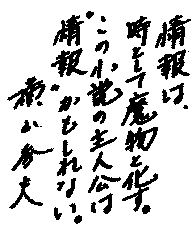 情報は、
時として魔物と化す。
この小説の主人公は
“情報”かもしれない。